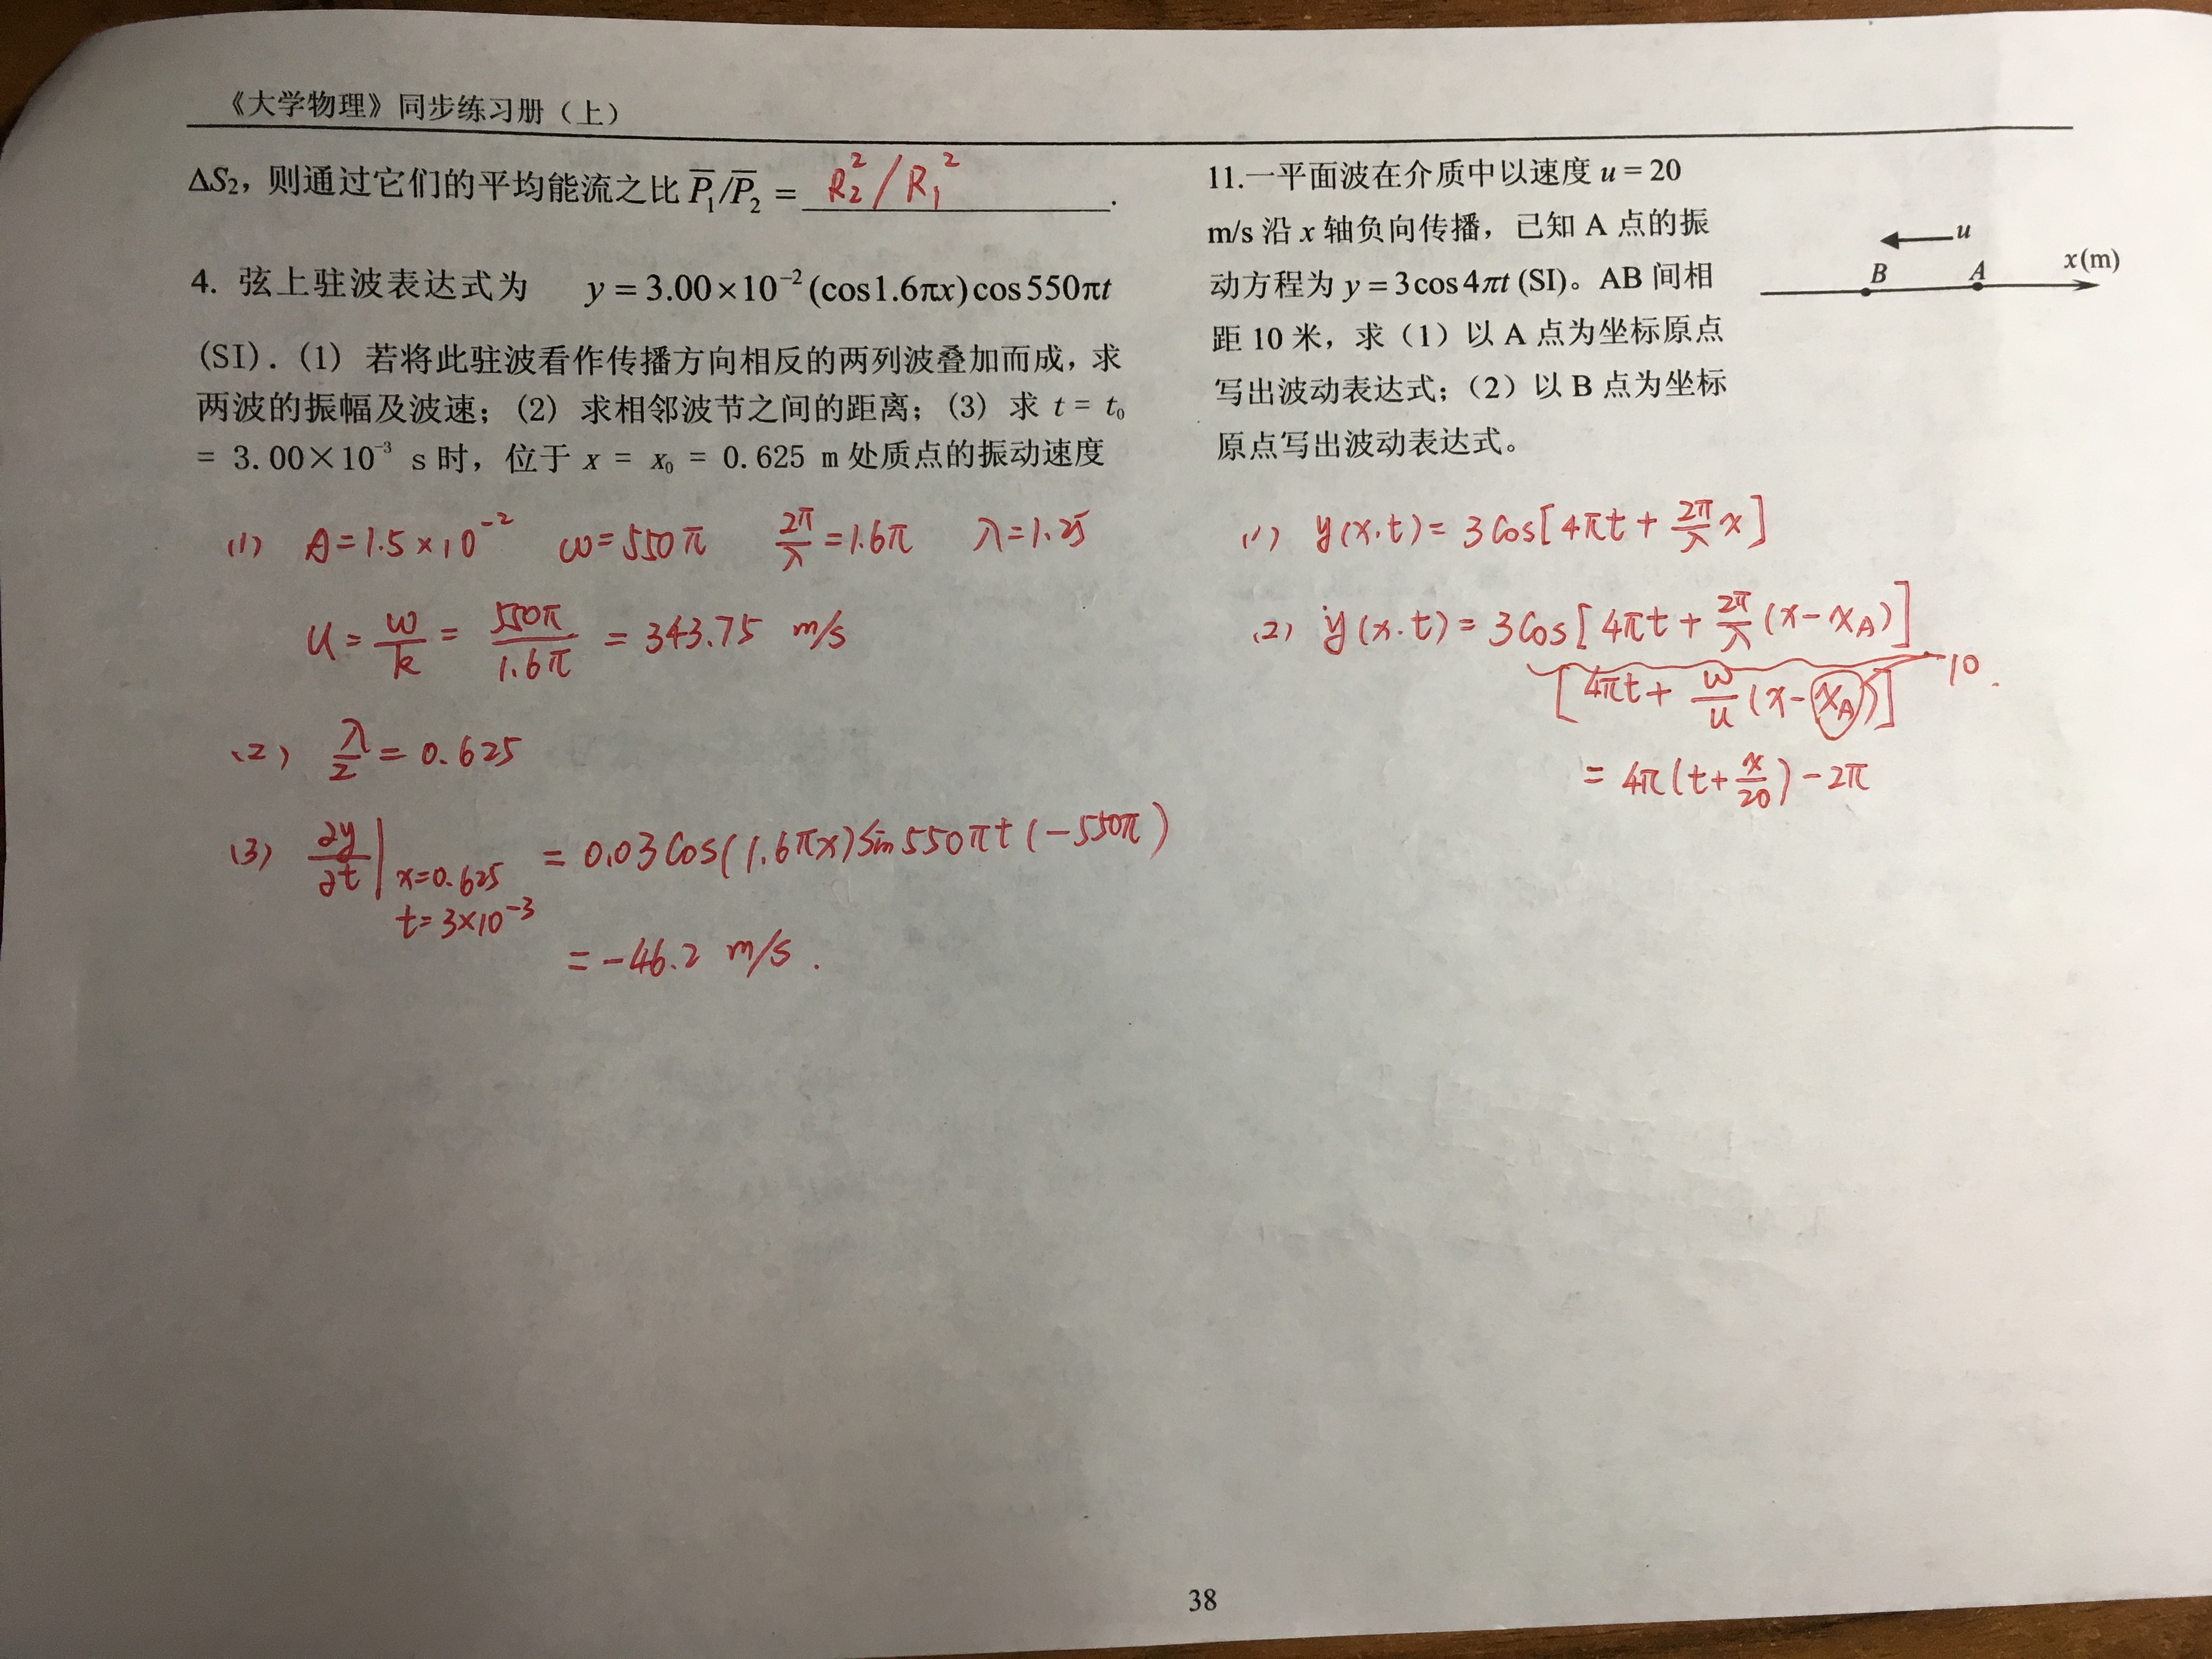 《大学物理》同步练习册（上）
ΔS₂，则通过它们的平均能流之比 P̅₁/P̅₂ = R₂²/R₁².
4. 弦上驻波表达式为 y = 3.00×10⁻²(cos1.6πx)cos550πt
(SI). (1) 若将此驻波看作传播方向相反的两列波叠加而成，求
两波的振幅及波速；(2) 求相邻波节之间的距离；(3) 求 t = t₀
= 3.00×10⁻³ s 时，位于 x = x₀ = 0.625 m 处质点的振动速度
(1) A=1.5×10⁻² ω=550π 2π/λ=1.6π λ=1.25
u = ω/k = 550π/1.6π = 343.75 m/s
(2) λ/2 = 0.625
(3) ∂y/∂t | x=0.625 t=3×10⁻³ = 0.03Cos(1.6πx)Sin550πt(-550π)
= -46.2 m/s.
11.一平面波在介质中以速度 u = 20
m/s 沿 x 轴负向传播，已知 A 点的振
动方程为 y = 3cos4πt (SI)。AB 间相
距 10 米，求（1）以 A 点为坐标原点
写出波动表达式；（2）以 B 点为坐标
原点写出波动表达式。
u
B A x(m)
(1) y(x.t) = 3Cos[4πt + 2π/λ x]
(2) y(x.t) = 3Cos[4πt + 2π/λ (x-x_A)]
[4πt + ω/u (x-x_A)] 10.
= 4π(t + x/20) - 2π
38